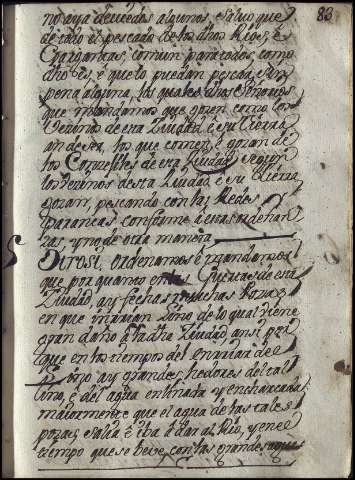 83
no aya deuedos algunos, saluo que
de todo el pescado de los dhos Rios, e
Gargantas, comun para todos, como
dho es, e que lo puedan pescar, sin
pena alguna, los quales dhos
que mandamos que gozen como los
Vecinos de esta Ciudad, e su tierra
an de ser, los que comen, e gozan de
los de esta Ciudad, segun
los vecinos desta Ciudad, e su tierra
gozan, pescando con las Redes
paranças conforme à estas ordenan
zas, y no de otra manera
Otrosi, ordenamos e mandamos
que por quanto en las de esta
Ciudad, ay fechas muchas Pozas
en que Lino de lo qual viene
gran daño à la dha Ciudad, ansi por
que en los tiempos del enrriar de el
Lino ay grandes hedores del tal
lino, e del agua entinada y encharcada
maiormente que el agua de las tales
pozas, salia è iba à dar al Rio, y en el
tiempo que se beve, con las grandes